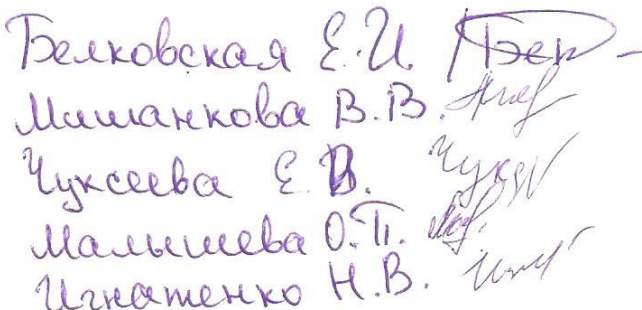 Белковская Е.И.
Мишанкова В.В.
Чуксеева Е.В.
Малышева О.П.
Игнатенко Н.В.